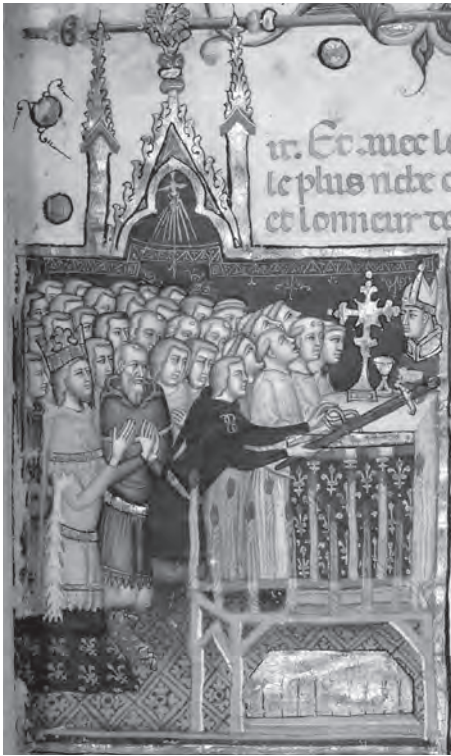 ir. Et. auec le
le plus riche
et lonneur de